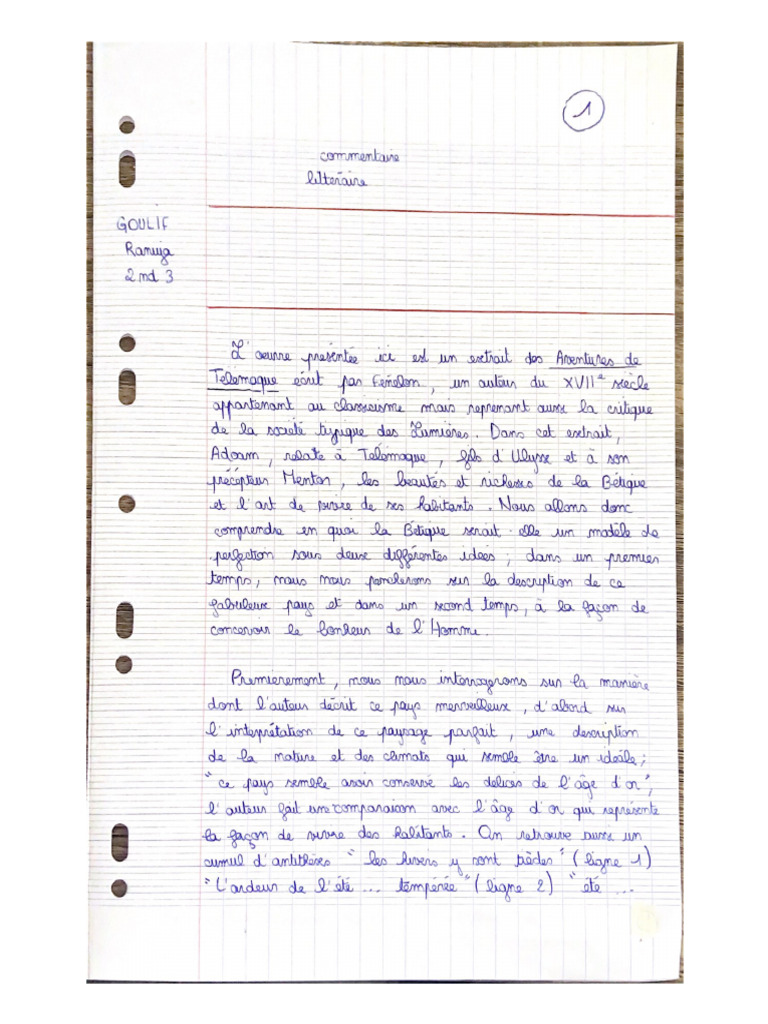 1
commentaire
littéraire
GOULIF
Ramija
2nd 3
L'œuvre présentée ici est un extrait des Aventures de
Télémaque écrit par Fénelon, un auteur du XVIIe siècle
appartenant au classicisme mais reprenant aussi la critique
de la société typique des Lumières. Dans cet extrait,
Adoam, relate à Télémaque, fils d'Ulysse et à son
précepteur Mentor, les beautés et richesses de la Bétique
et l'art de vivre de ses habitants. Nous allons donc
comprendre en quoi la Bétique serait-elle un modèle de
perfection sous deux différentes idées ; dans un premier
temps, nous nous pencherons sur la description de ce
fabuleux pays et dans un second temps, à la façon de
concevoir le bonheur de l'Homme.
Premièrement, nous nous interrogerons sur la manière
dont l'auteur décrit ce pays merveilleux, d'abord sur
l'interprétation de ce paysage parfait, une description
de la nature et des climats qui semble être un idéale ;
"ce pays semble avoir conservé les délices de l'âge d'or",
l'auteur fait une comparaison avec l'âge d'or qui représente
la façon de vivre des habitants. On retrouve aussi un
cumul d'antithèses "les hivers y sont tièdes" (ligne 1)
"L'ardeur de l'été ... tempérée" (ligne 2) "été ...